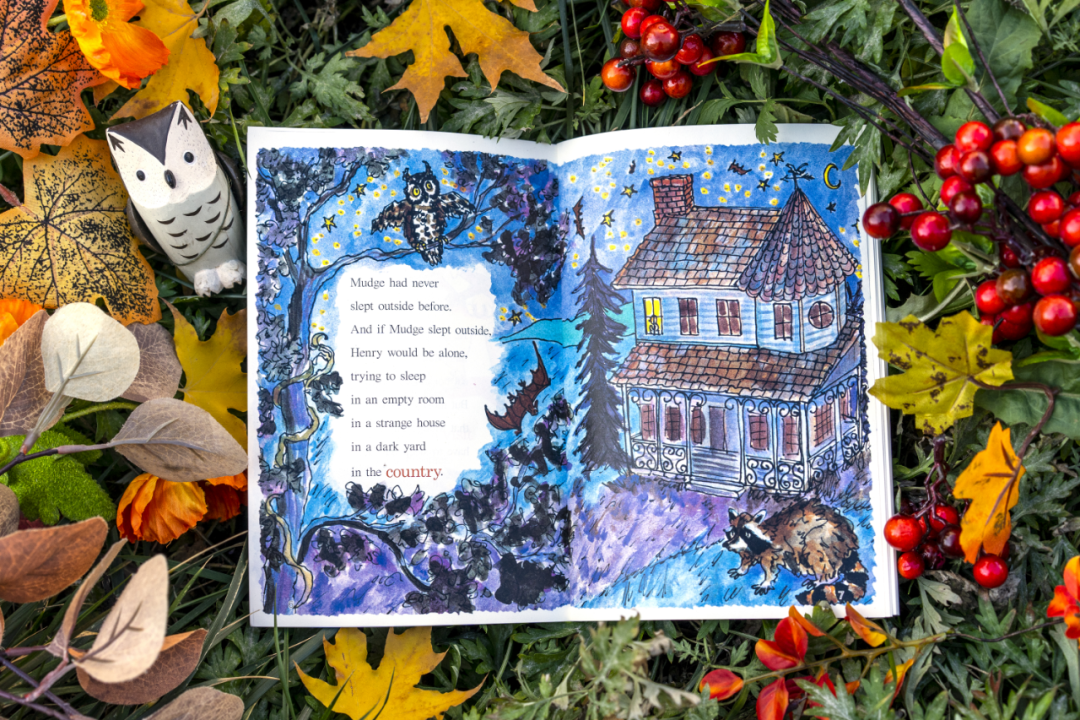 Mudge had never
slept outside before.
And if Mudge slept outside,
Henry would be alone,
trying to sleep
in an empty room
in a strange house
in a dark yard
in the country.
7